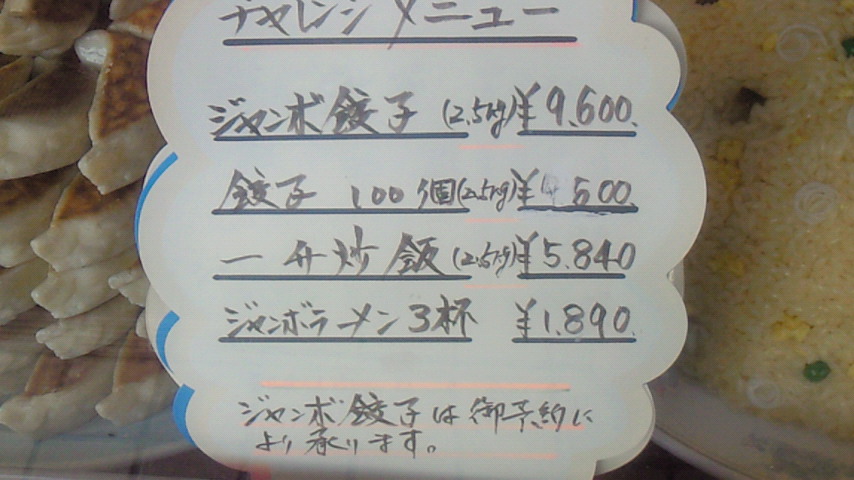 チャレンジメニュー
ジャンボ餃子(2.5kg)¥9.600.
餃子 100個(2.5kg)¥4.500.
一升炒飯(2.5kg)¥5.840
ジャンボラーメン3杯 ¥1.890.
ジャンボ餃子は御予約に
より承ります。